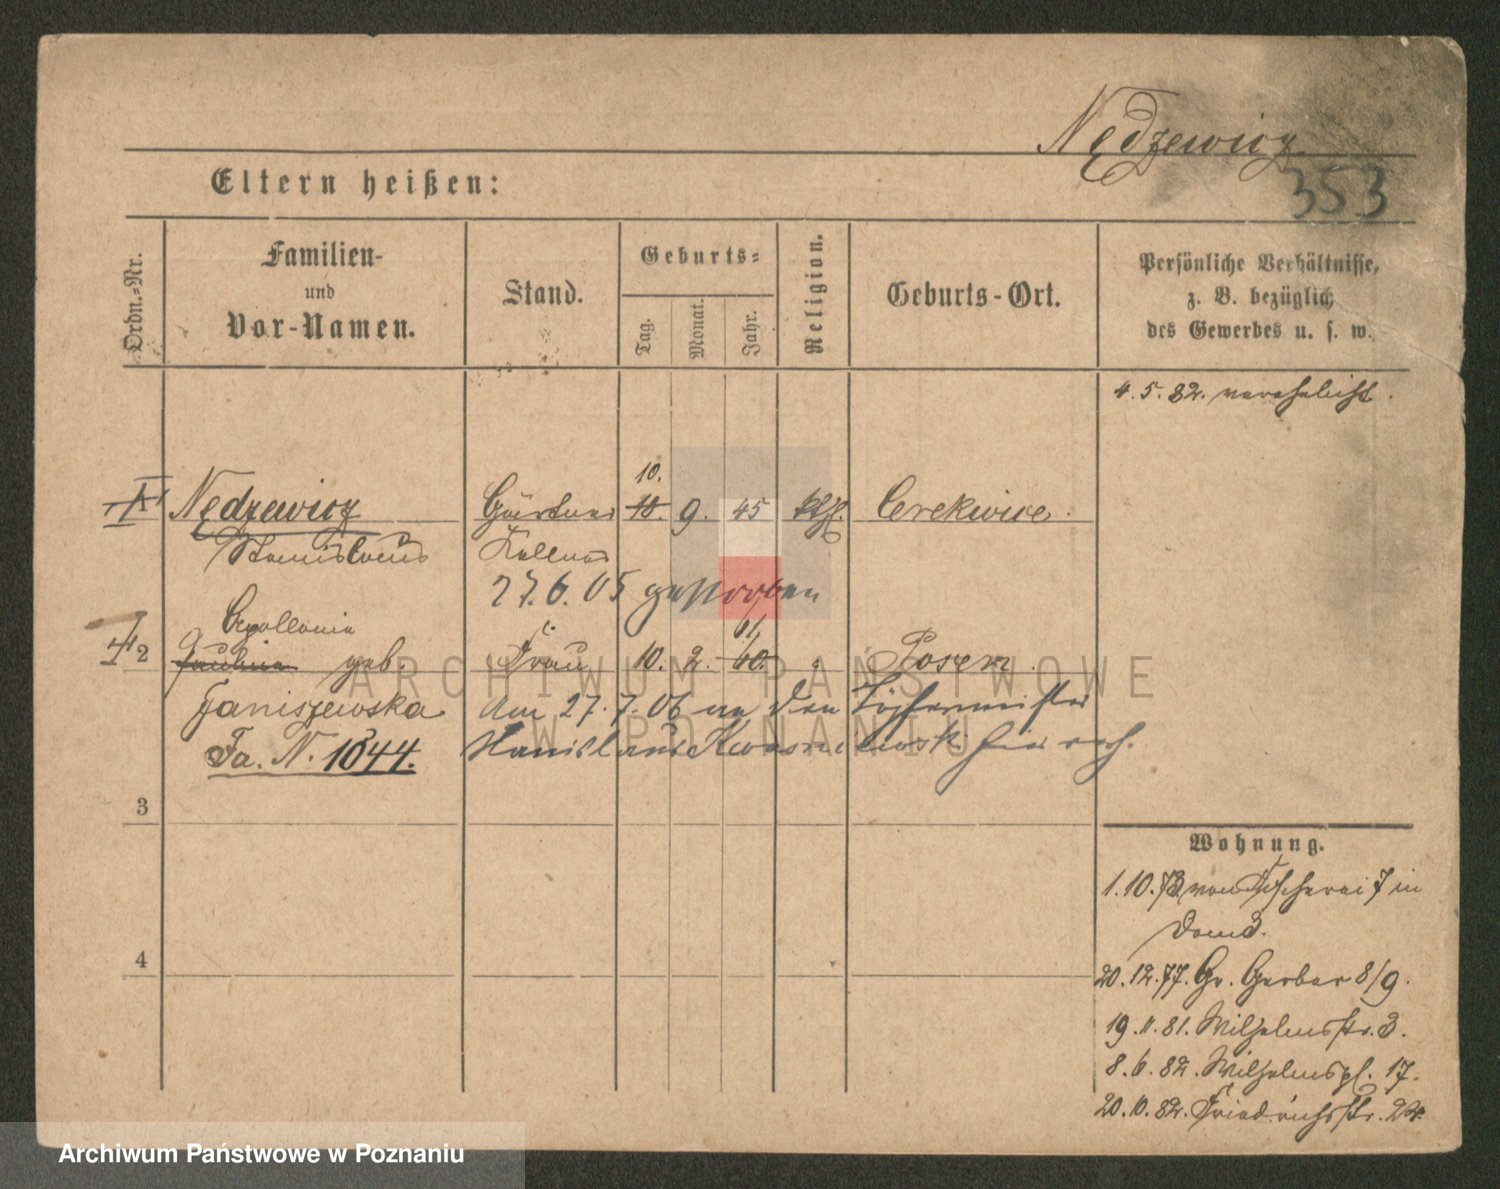 Nędzewicz
353
Eltern heißen:
Ordn.-Nr.
Familien-
und
Vor-Namen.
Stand.
Geburts-
Tag.
Monat.
Jahr.
Religion.
Geburts-Ort.
Persönliche Verhältnisse,
z. B. bezüglich
des Gewerbes u. s. w.
4. 5. 82. verehelicht.
1 Nędzewicz Gärtner 10. 18. 9. 45 kth. Cerekwice.
Stanislaus Kellner
27. 6. 05 gestorben
Apollonia
2 Paulina geb. Frau 10. 2. 61 60. " Posen.
Janiszewska Am 27. 7. 06 an den
Fa. N. 1844. Stanislaus Kwasniewski
3
4
Wohnung.
1. 10. 78 von Fischerei 7 in
Dom 3.
20. 12. 77. Gr. Gerber 8/9.
19. 11. 81. Wilhelmsstr. 3.
8. 6. 82. Wilhelmspl. 17.
20. 10. 82. Friedrichsstr. 24.
ARCHIWUM PAŃSTWOWE
W POZNANIU
Archiwum Państwowe w Poznaniu